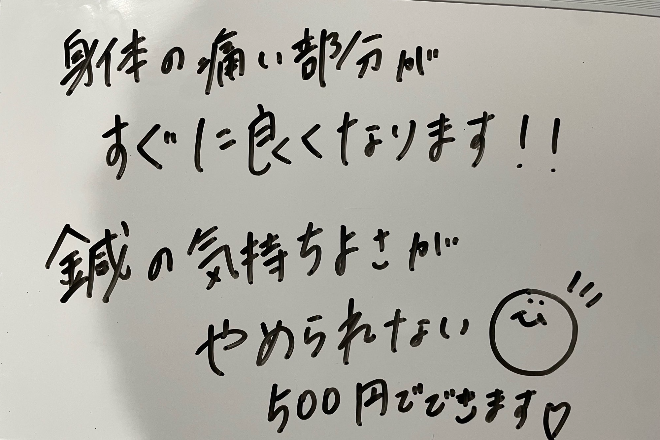 身体の痛い部分が
すぐに良くなります!!
鍼の気持ちよさが
やめられない
500円でできます♡